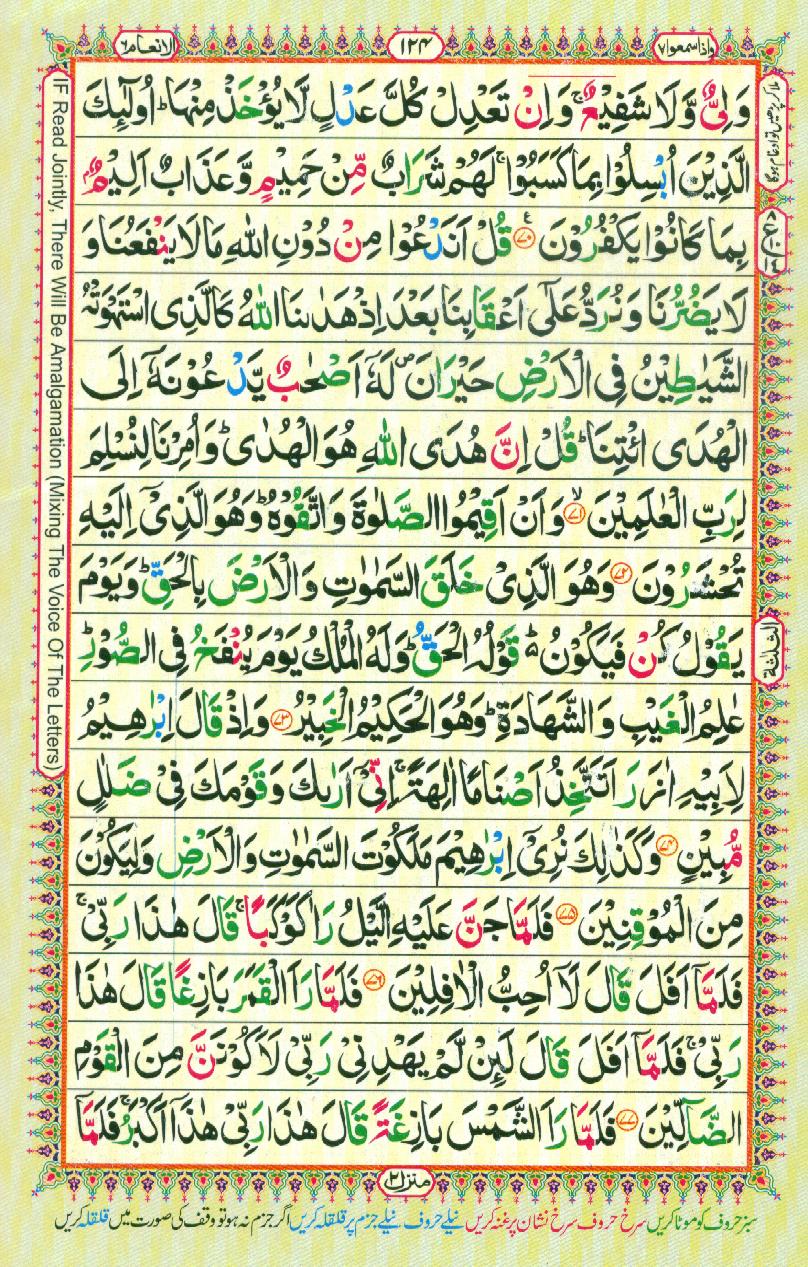 واذا سمعوا ٧
١٢٤
الانعام ٦
وَلِیٌّ وَّلَا شَفِیْعٌ ۚ وَاِنْ تَعْدِلْ كُلَّ عَدْلٍ لَّا یُؤْخَذْ مِنْهَا ؕ اُولٰٓئِكَ
الَّذِیْنَ اُبْسِلُوْا بِمَا كَسَبُوْا ۚ لَهُمْ شَرَابٌ مِّنْ حَمِیْمٍ وَّعَذَابٌ اَلِیْمٌۢ
بِمَا كَانُوْا یَكْفُرُوْنَ ﴿۷۰﴾ قُلْ اَنَدْعُوْا مِنْ دُوْنِ اللّٰهِ مَا لَا یَنْفَعُنَا وَ
لَا یَضُرُّنَا وَنُرَدُّ عَلٰۤی اَعْقَابِنَا بَعْدَ اِذْ هَدٰىنَا اللّٰهُ كَالَّذِی اسْتَهْوَتْهُ
الشَّیٰطِیْنُ فِی الْاَرْضِ حَیْرَانَ ۪ لَهٗۤ اَصْحٰبٌ یَّدْعُوْنَهٗۤ اِلَی
الْهُدَی ائْتِنَا ؕ قُلْ اِنَّ هُدَی اللّٰهِ هُوَ الْهُدٰی ؕ وَاُمِرْنَا لِنُسْلِمَ
لِرَبِّ الْعٰلَمِیْنَ ۙ﴿۷۱﴾ وَاَنْ اَقِیْمُوا الصَّلٰوةَ وَاتَّقُوْهُ ؕ وَهُوَ الَّذِیْۤ اِلَیْهِ
تُحْشَرُوْنَ ﴿۷۲﴾ وَهُوَ الَّذِیْ خَلَقَ السَّمٰوٰتِ وَالْاَرْضَ بِالْحَقِّ ؕ وَیَوْمَ
یَقُوْلُ كُنْ فَیَكُوْنُ ؕ قَوْلُهُ الْحَقُّ ؕ وَلَهُ الْمُلْكُ یَوْمَ یُنْفَخُ فِی الصُّوْرِ ؕ
عٰلِمُ الْغَیْبِ وَالشَّهَادَةِ ؕ وَهُوَ الْحَكِیْمُ الْخَبِیْرُ ﴿۷۳﴾ وَاِذْ قَالَ اِبْرٰهِیْمُ
لِاَبِیْهِ اٰزَرَ اَتَتَّخِذُ اَصْنَامًا اٰلِهَةً ۚ اِنِّیْۤ اَرٰىكَ وَقَوْمَكَ فِیْ ضَلٰلٍ
مُّبِیْنٍ ﴿۷۴﴾ وَكَذٰلِكَ نُرِیْۤ اِبْرٰهِیْمَ مَلَكُوْتَ السَّمٰوٰتِ وَالْاَرْضِ وَلِیَكُوْنَ
مِنَ الْمُوْقِنِیْنَ ﴿۷۵﴾ فَلَمَّا جَنَّ عَلَیْهِ الَّیْلُ رَاٰ كَوْكَبًا ۚ قَالَ هٰذَا رَبِّیْ ۚ
فَلَمَّاۤ اَفَلَ قَالَ لَاۤ اُحِبُّ الْاٰفِلِیْنَ ﴿۷۶﴾ فَلَمَّا رَاَ الْقَمَرَ بَازِغًا قَالَ هٰذَا
رَبِّیْ ۚ فَلَمَّاۤ اَفَلَ قَالَ لَىِٕنْ لَّمْ یَهْدِنِیْ رَبِّیْ لَاَكُوْنَنَّ مِنَ الْقَوْمِ
الضَّآلِّیْنَ ﴿۷۷﴾ فَلَمَّا رَاَ الشَّمْسَ بَازِغَةً قَالَ هٰذَا رَبِّیْ هٰذَاۤ اَكْبَرُ ۚ فَلَمَّاۤ
الثلثة
IF Read Jointly, There Will Be Amalgamation (Mixing The Voice Of The Letters)
منزل ٢
سبز حروف کو موٹا کریں سرخ حروف سرخ نشان پر غنہ کریں نیلے حروف نیلے جزم پر قلقلہ کریں اگر جزم نہ ہو تو وقف کی صورت میں قلقلہ کریں